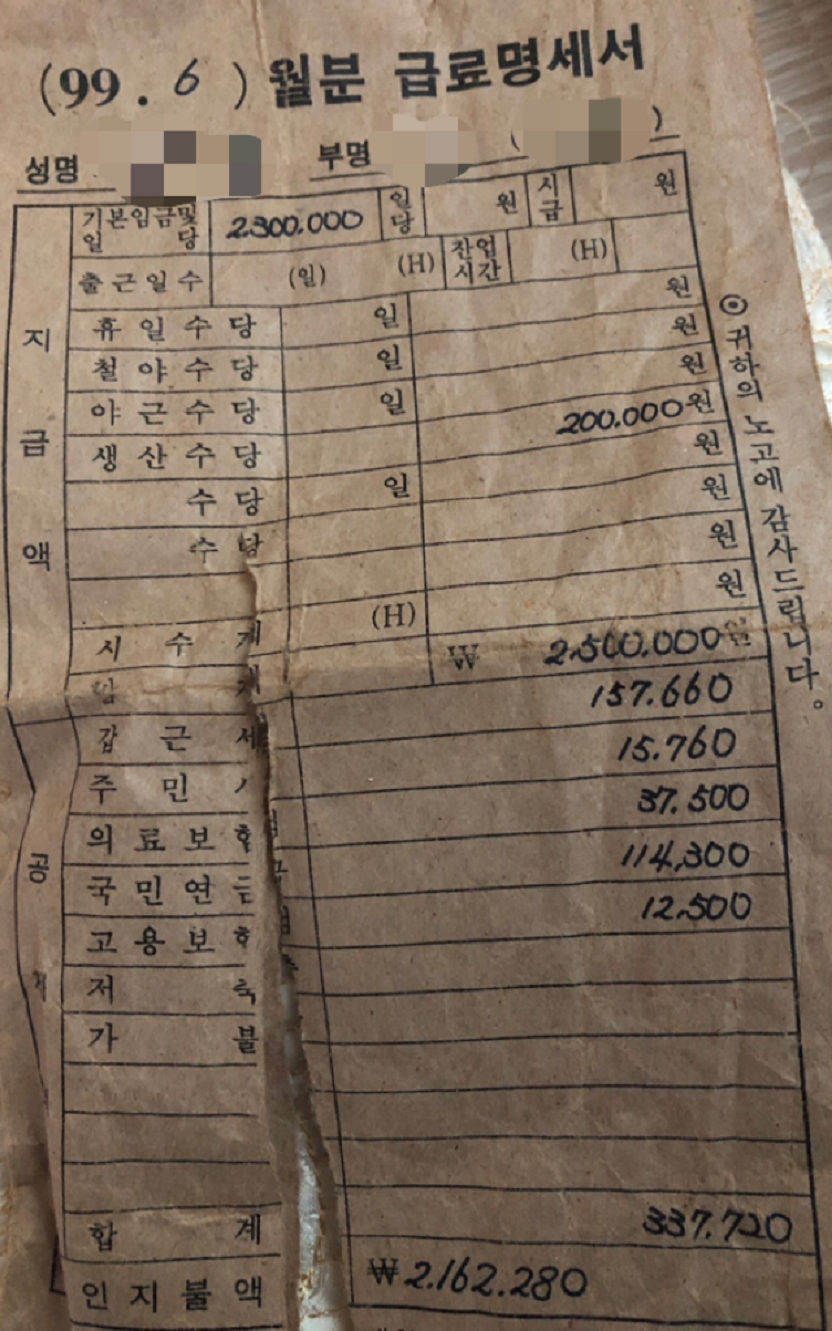 (99. 6) 월분 급료명세서
성명 부명 ( )
지급액
기본임금및일당 2.300.000 일당 원 시급 원
출근일수 (일) (H) 잔업시간 (H)
휴일수당 일 원
철야수당 일 원
야근수당 일 원
생산수당 200.000원
수당 일 원
수당 원
원
시수계 (H) 원
₩ 2.500.000원
갑근세 157.660
주민 15.760
의료보험 37.500
국민연금 114,300
고용보험 12.500
저축
가불
합계 337.720
인지불액 ₩2.162.280
공
⊙ 귀하의 노고에 감사드립니다.